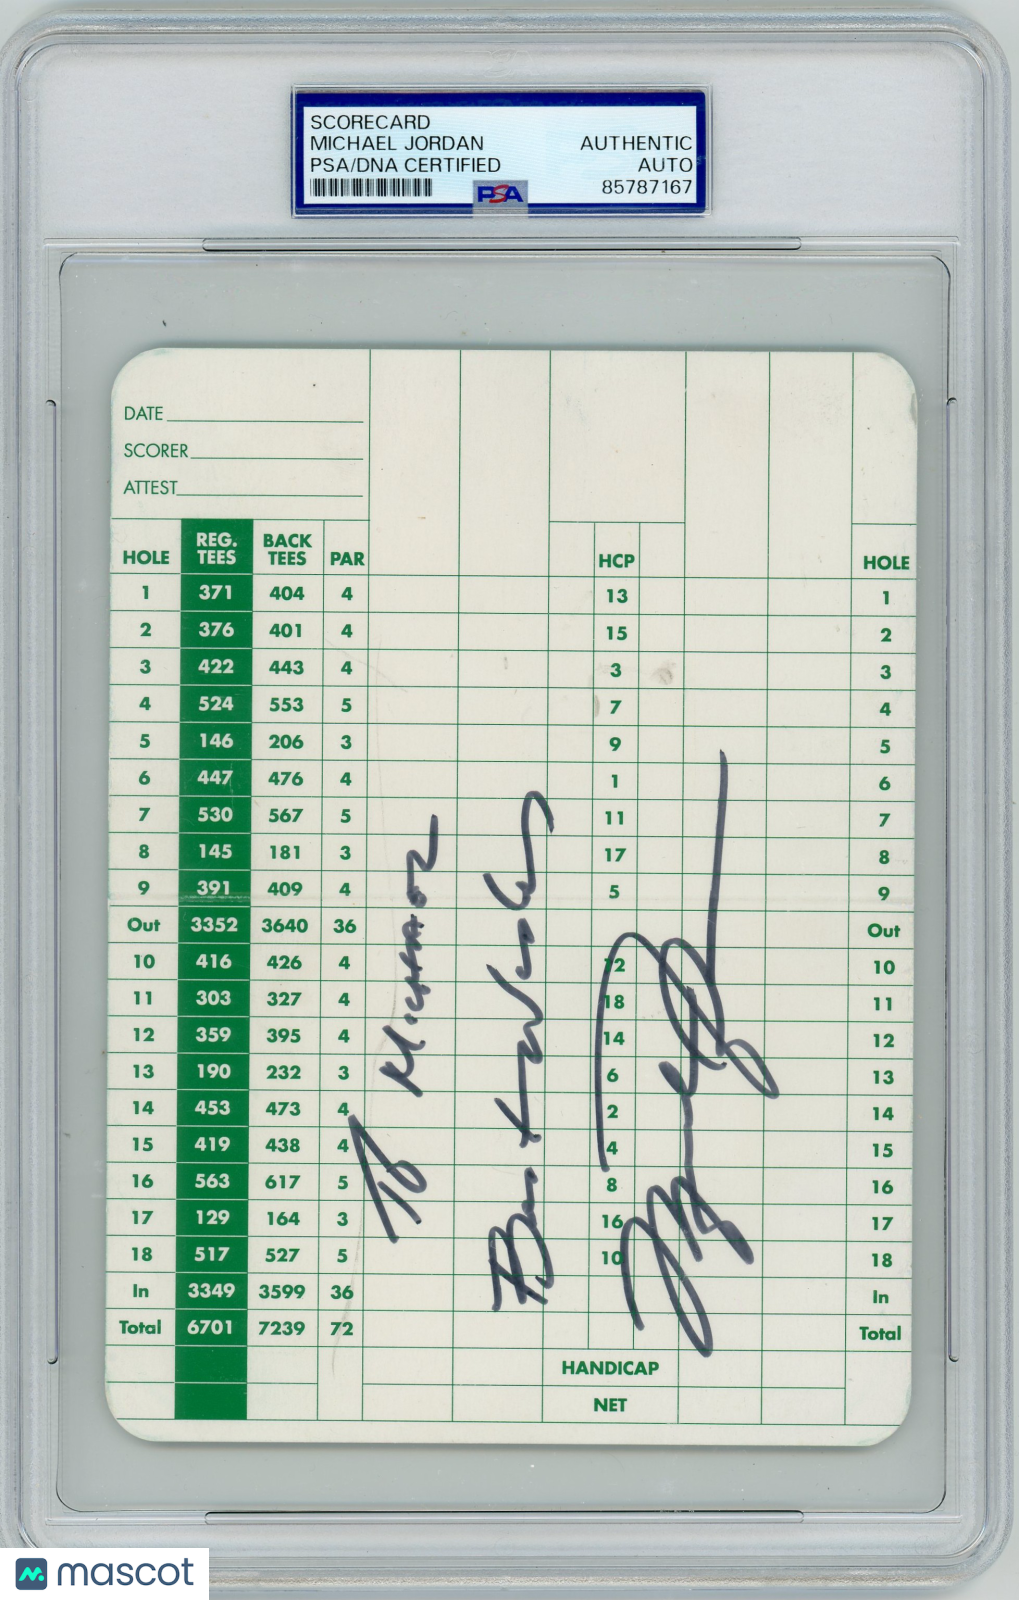 SCORECARD
MICHAEL JORDAN AUTHENTIC
PSA/DNA CERTIFIED AUTO
85787167
PSA
DATE
SCORER
ATTEST
HOLE REG. TEES BACK TEES PAR HCP HOLE
1 371 404 4 13 1
2 376 401 4 15 2
3 422 443 4 3 3
4 524 553 5 7 4
5 146 206 3 9 5
6 447 476 4 1 6
7 530 567 5 11 7
8 145 181 3 17 8
9 391 409 4 5 9
Out 3352 3640 36 Out
10 416 426 4 12 10
11 303 327 4 18 11
12 359 395 4 14 12
13 190 232 3 6 13
14 453 473 4 2 14
15 419 438 4 4 15
16 563 617 5 8 16
17 129 164 3 16 17
18 517 527 5 10 18
In 3349 3599 36 In
Total 6701 7239 72 Total
HANDICAP
NET
To Michael
Best Wishes
Michael Jordan
mascot